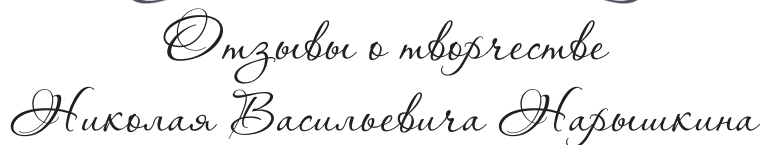 Отзывы о творчестве
Николая Васильевича Нарышкина